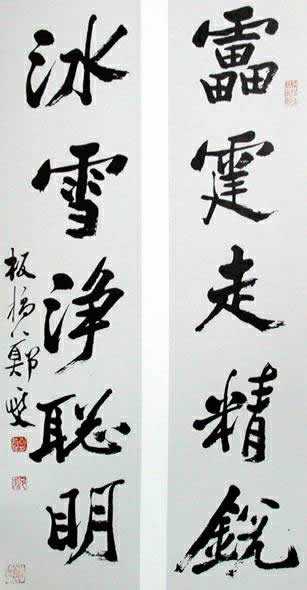 靁霆走精銳
冰雪淨聰明
板橋鄭燮